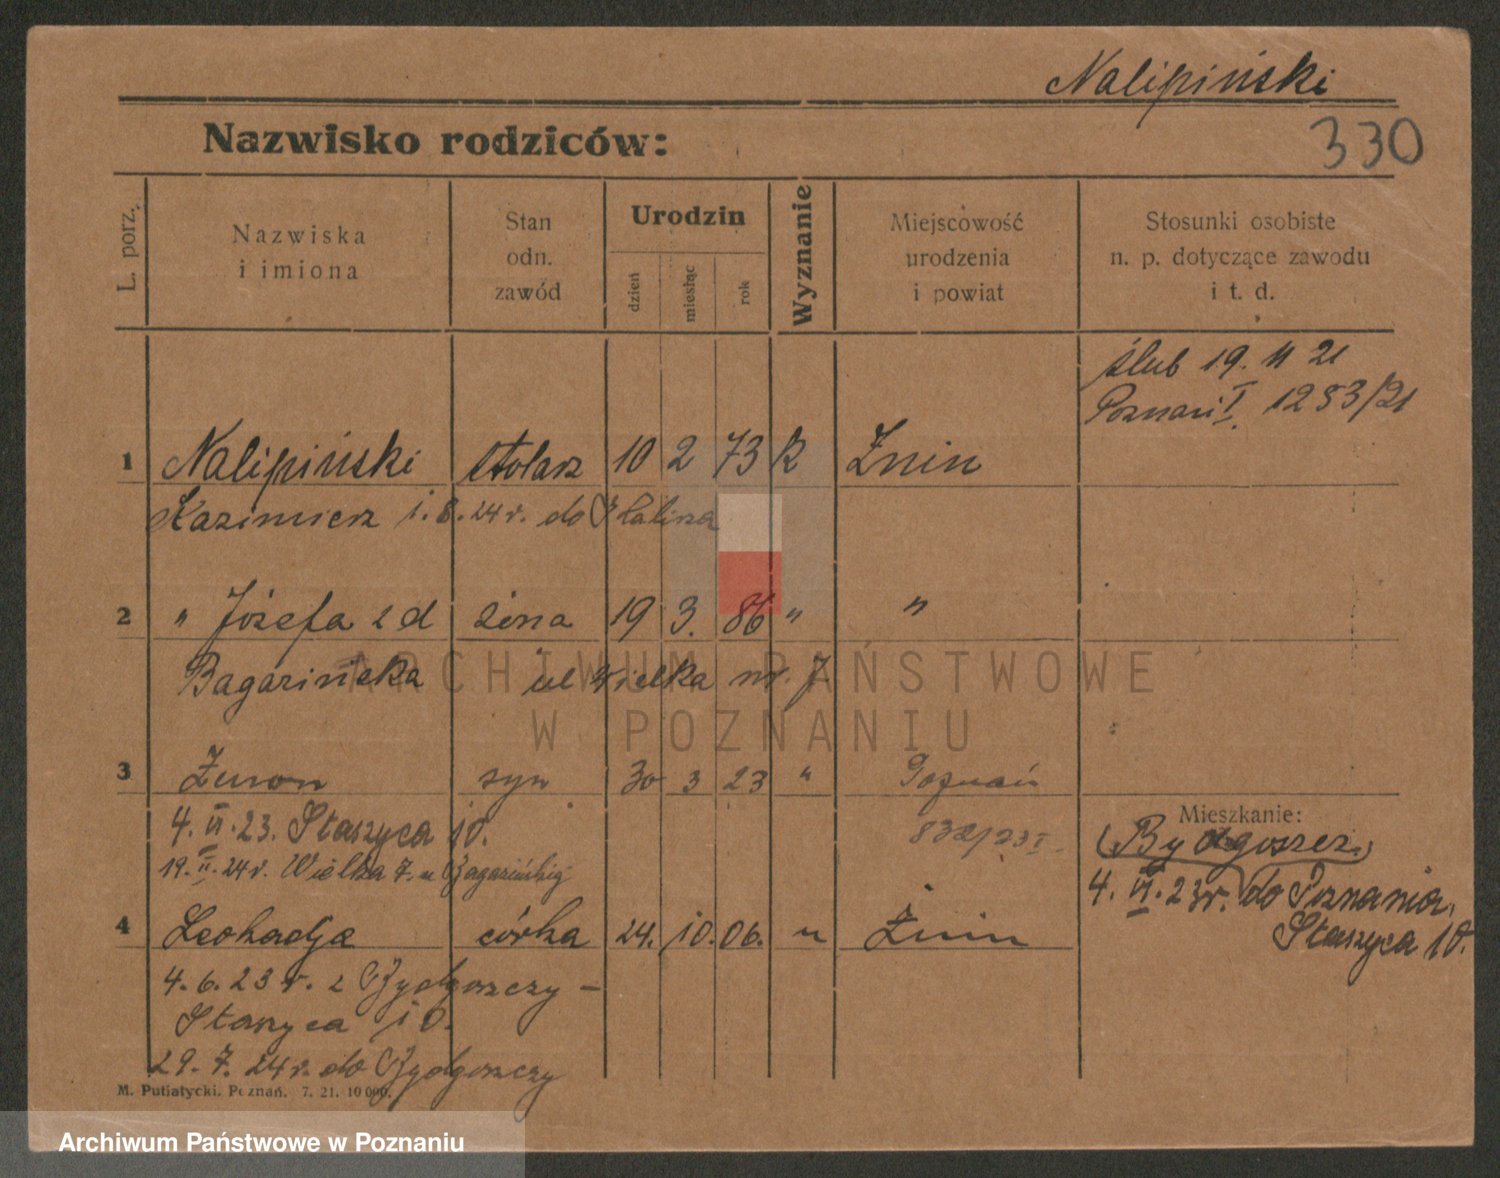 Nalipiński
330
Nazwisko rodziców:
L. porz.
Nazwiska
i imiona
Stan
odn.
zawód
Urodzin
dzień
miesiąc
rok
Wyznanie
Miejscowość
urodzenia
i powiat
Stosunki osobiste
n. p. dotyczące zawodu
i t. d.
ślub 19. 11 21
Poznań I. 1283/21
1 Nalipiński stolarz 10 2 73 k Żnin
Kazimierz 1.8.24 r. do Kalisza
2 " Józefa z d żona 19 3. 86 " "
Bagazińska ul Wielka nr. 7
3 syn 30 3 23 " Poznań
4. VI. 23. Staszyca 10. 832/23 I
19. II. 24 r. Wielka 7. u
Mieszkanie:
(Bydgoszcz)
4. VI. 23 r. do Poznania,
Staszyca 10.
4 Leokadja córka 24. 10. 06. " Żnin
4. 6. 23 r. z Bydgoszczy –
Staszyca 10.
29. 7. 24 r. do Bydgoszczy
M. Putiatycki, Poznań. 7. 21. 10 000.
ARCHIWUM PAŃSTWOWE
W POZNANIU
Archiwum Państwowe w Poznaniu